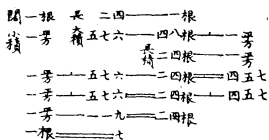 闊一根 長 二四——一根
小積 一芳 大積 五七六——四八根—⊥—一芳
長積 二四根——一芳
一芳—⊥—五七六——二四根══四五七
一芳—⊥—五七六══二四根—⊥—四五七
一芳——一一九══二四根
一根══七